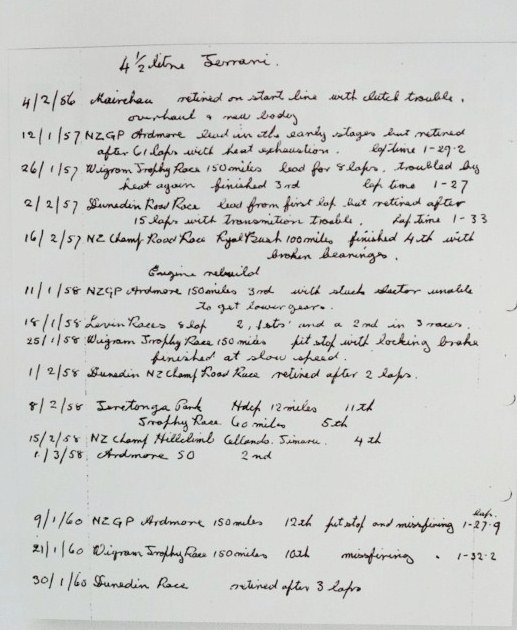 4 1/2 litre Ferrari.
4/2/56 Mairehau retired on start line with clutch trouble.
overhaul & new body
12/1/57 NZGP Ardmore lead in the early stages but retired
after 61 laps with heat exhaustion. lap time 1-29-2
26/1/57 Wigram Trophy Race 150 miles lead for 8 laps, troubled by
heat again finished 3rd lap time 1-27
2/2/57 Dunedin Road Race lead from first lap but retired after
15 laps with transmition trouble. Lap time 1-33
16/2/57 NZ Champ Road Race Ryal Bush 100 miles finished 4th with
broken bearings.
Engine rebuild
11/1/58 NZGP Ardmore 150 miles 3rd with stuck selector unable
to get lower gears.
18/1/58 Levin Races 8 lap 2, 1sts' and a 2nd in 3 races.
25/1/58 Wigram Trophy Race 150 miles pit stop with locking brake
finished at slow speed.
1/2/58 Dunedin NZ Champ Road Race retired after 2 laps.
8/2/58 Teretonga Park Hdcp 12 miles 11th
Trophy Race 60 miles 5th
15/2/58 NZ Champ Hillclimb Timaru. 4th
1/3/58 Ardmore 50 2nd
Lap.
9/1/60 NZGP Ardmore 150 miles 12th pit stop and missfiring 1-27-9
21/1/60 Wigram Trophy Race 150 miles 10th missfiring . 1-32-2
30/1/60 Dunedin Race retired after 3 laps